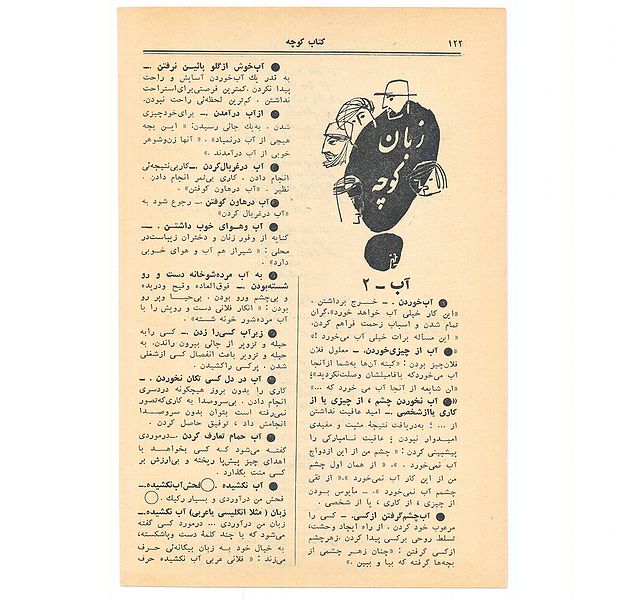 ۱۲۲
کتاب کوچه
زبان
کوچه
آب ـ ۲
● آب‌خوردن . ـ خــرج برداشتن .
«این کار خیلی آب خواهد خورد».گران
تمام شدن و اسباب زحمت فراهم کردن.
« این مسأله برات خیلی آب می‌خورد !»
«● آب از چیزی‌خوردن. ـ معلول فلان
فلان‌چیز بودن : «کینه آن‌ها به‌شما ازآنجا
آب می‌خوردکه بافامیلشان وصلت‌نکردید»؛
«ان شایعه از آنجا آب می خورد که ...»
«● آب نخوردن چشم ، از چیزی یا از
کاری یاازشخصی .ـ امید عاقبت نداشتن
از ... ؛ به‌دریافت نتیجهٔ مثبت و مفیدی
امیـدوار نبودن ؛ عاقبت نامبارکی را
پیشبینی کردن : « چشم من از این ازدواج
آب نمی‌خورد . ». « از همان اول چشم
من از این کار آب نمی‌خورد».« از تقی
چشمم آب نمی‌خورد ». ـ مأیوس بـودن
از چیزی ، از کاری ، یا از شخصی .
● آب‌چشم‌گرفتن ازکسی. ـ کسی را
مرعوب خود کردن . از راه ایجاد وحشت،
تسلط روحی برکسی پیدا کردن .زهرچشم
ازکسی گرفتن : «چنان زهر چشمی از
بچه‌ها گرفته که بیا و ببین .»
● آب‌خوش ازگلو پائیـن نرفتن .ـ
به قدر یك آب‌خوردن آسایش و راحت
پیدا نکردن .کمترین فرصتی‌برای‌استراحت
نداشتن . کم‌ترین لحظه‌ئی راحت نبودن.
● ازآب درآمدن .ـ برای‌خودچیزی
شدن . به‌یك جائی رسیدن: « این بچه
هیچی از آب درنمیاد» . « آنها زن‌وشوهر
خوبی از آب درآمدند .»
● آب درغربال‌کردن .ـکاربی‌نتیجه‌ئی
انجام دادن . کاری بی‌ثمر انجام دادن .
نظیر . «آب درهاون کوفتن» .
● آب درهاون کوفتن .ـ رجوع شود به
«آب درغربال کردن»
● آب وهـوای خوب داشتـن . ــ
کنایه از وفور زنان و دختران زیباست‌در
محلی : « شیراز هم آب و هوای خـوبی
دارد» .
● به آب مرده‌شوخانه دست و رو
شسته‌بودن .ـ فوق‌العاده وقیح ودریده
و بی‌چشم ورو بودن . بی‌حیـا وپر رو
بودن : « انگار فلانی دست و رویش را با
آب مرده‌شور خونه شسته» .
● زیرآب کسی‌را زدن .ـ کسی رابه
حیله و تزویر از جائی بیرون راندن. به
حیله و تزویر باعث انفصال کسی ازشغلی
شدن . پرکسی راکشیدن .
● آب در دل کسی تکان نخوردن . ـ
کاری را بدون بروز هیچگونه دردسری
انجام دادن . بی‌سروصدا به کاری‌که‌تصور
نمی‌رفته است بتوان بدون سروصـدا
انجامش داد ، توفیق حاصل کردن .
● آب حمام تعارف کردن .ـدرموردی
گفته‌می‌شود که کسی بخواهـد با
اهدای چیز پیش‌پا ریخته و بی‌ارزش بر
کسی منت بگذارد
● آب نکشیده . ـ فحش‌آب‌نکشیده.ـ
فحش من درآوردی و بسیار رکیك .
زبان (مثلا انگلیسی یاعربی) آب نکشیده.ـ
زبان من درآوردی ... درمورد کسی گفته
می‌شود که با چند کلمهٔ دست وپاشکسته،
به خیال خود به زبان بیگانه‌ئی حرف
می‌زند : « فلانی عربی آب نکشیده حرف